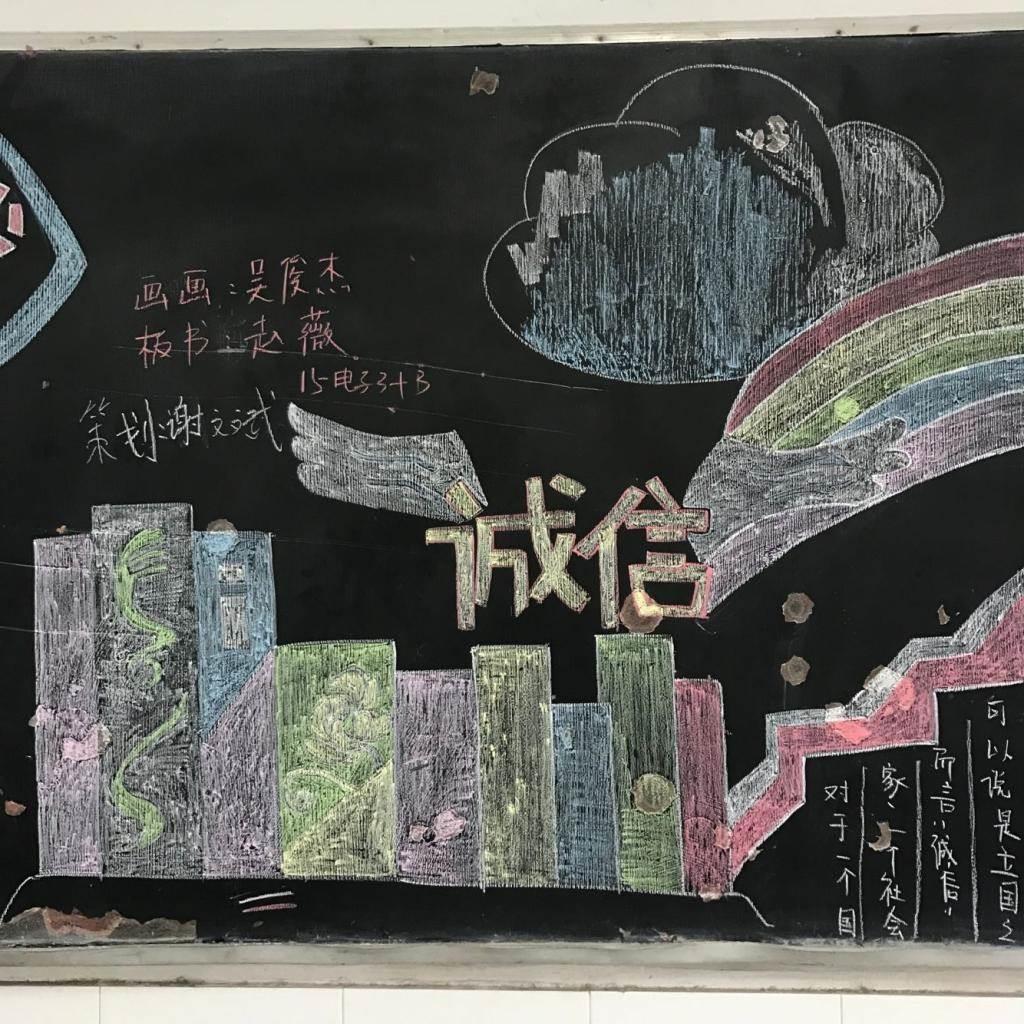 画画:吴俊杰
板书:赵薇
15电子3+3
策划:谢文斌
诚信
对于一个国
家、一个社会
而言“诚信”
可以说是立国之